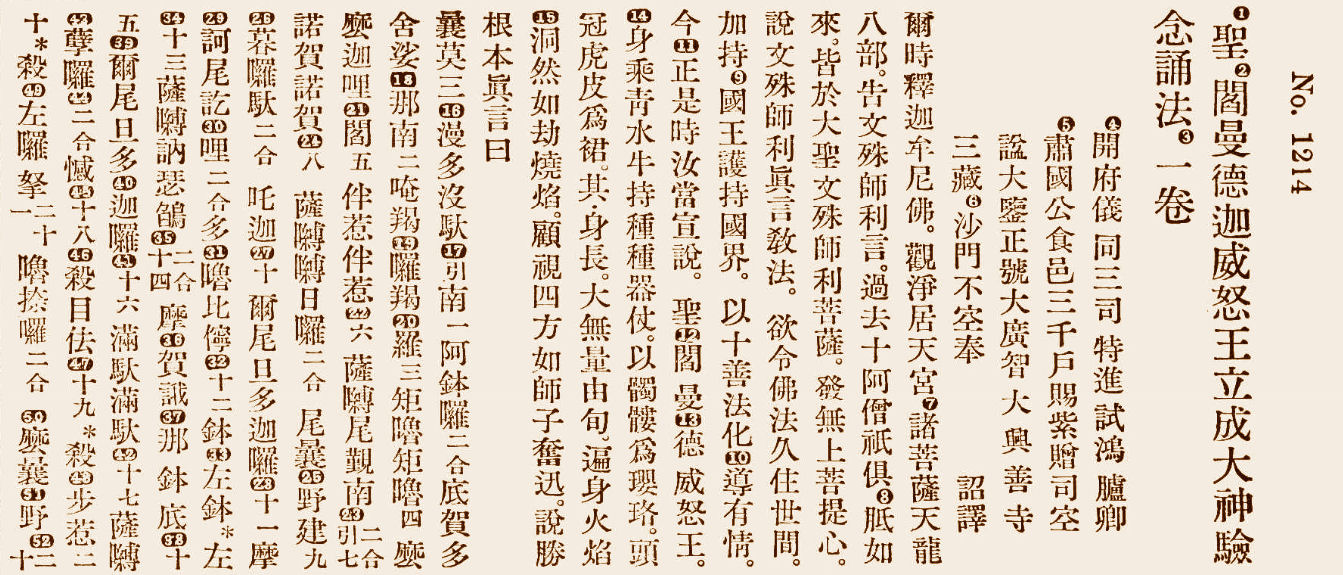 No. 1214
①聖②閻曼德迦威怒王立成大神驗
念誦法③一卷
④開府儀同三司特進試鴻臚卿
⑤肅國公食邑三千戶賜紫贈司空
諡大鑒正號大廣智大興善寺
三藏⑥沙門不空奉 詔譯
爾時釋迦牟尼佛。觀淨居天宮⑦諸菩薩天龍
八部。告文殊師利言。過去十阿僧祇俱⑧胝如
來。皆於大聖文殊師利菩薩。發無上菩提心。
說文殊師利眞言教法。欲令佛法久住世間。
加持⑨國王護持國界。以十善法化⑩導有情。
今⑪正是時汝當宣說。聖⑫閻曼⑬德威怒王。
⑭身乘青水牛持種種器仗。以髑髏爲瓔珞。頭
冠虎皮爲裙。其身長。大無量由旬。遍身火焰
⑮洞然如劫燒焰。顧視四方如師子奮迅。說勝
根本眞言曰
曩莫三⑯漫多沒馱⑰引南一阿鉢囉二合底賀多
舍娑⑱那南二唵羯⑲囉羯⑳羅三矩嚕矩嚕四麼
麼迦哩㉑閻五伴惹伴惹㉒六薩嚩尾覲南㉓二合引七
諾賀諾賀㉔八薩嚩嚩日囉二合尾曩㉕野建九
㉖暮囉馱二合吒迦㉗十爾尾旦多迦囉㉘十一摩
㉙訶尾訖㉚哩二合多㉛嚕比儜㉜十二鉢㉝左鉢*左
㉞十三薩嚩訥瑟鵮㉟二合十四摩㊱賀誐㊲那鉢底㊳十
五㊴爾尾旦多㊵迦囉㊶十六滿馱滿馱㊷十七薩嚩
㊸孽囉㊹二合憾㊺十八㊻殺目佉㊼十九*殺㊽步惹二
十*殺㊾左囉拏二十一嚕捺囉二合㊿麼曩51野52二十